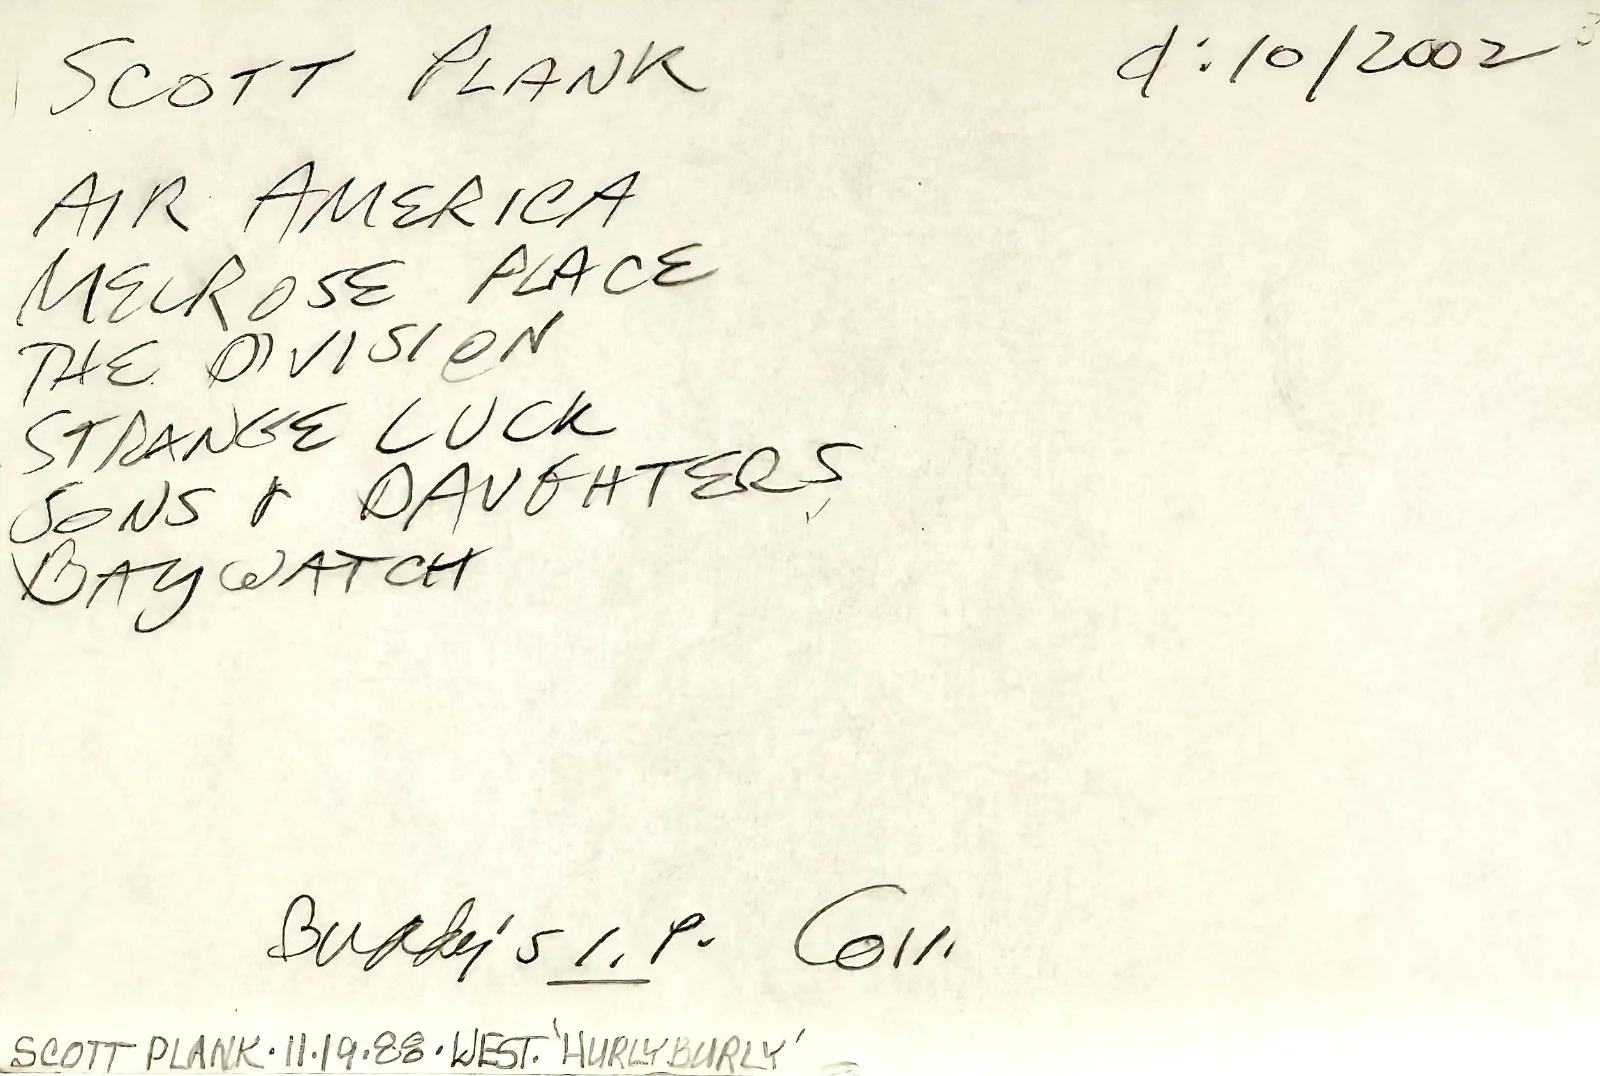 SCOTT PLANK d:10/2002
AIR AMERICA
MELROSE PLACE
THE DIVISION
STRANGE LUCK
SONS & DAUGHTERS
BAYWATCH
Buddy's I.P. Coll.
SCOTT PLANK·11·19·88·WEST. 'HURLYBURLY'